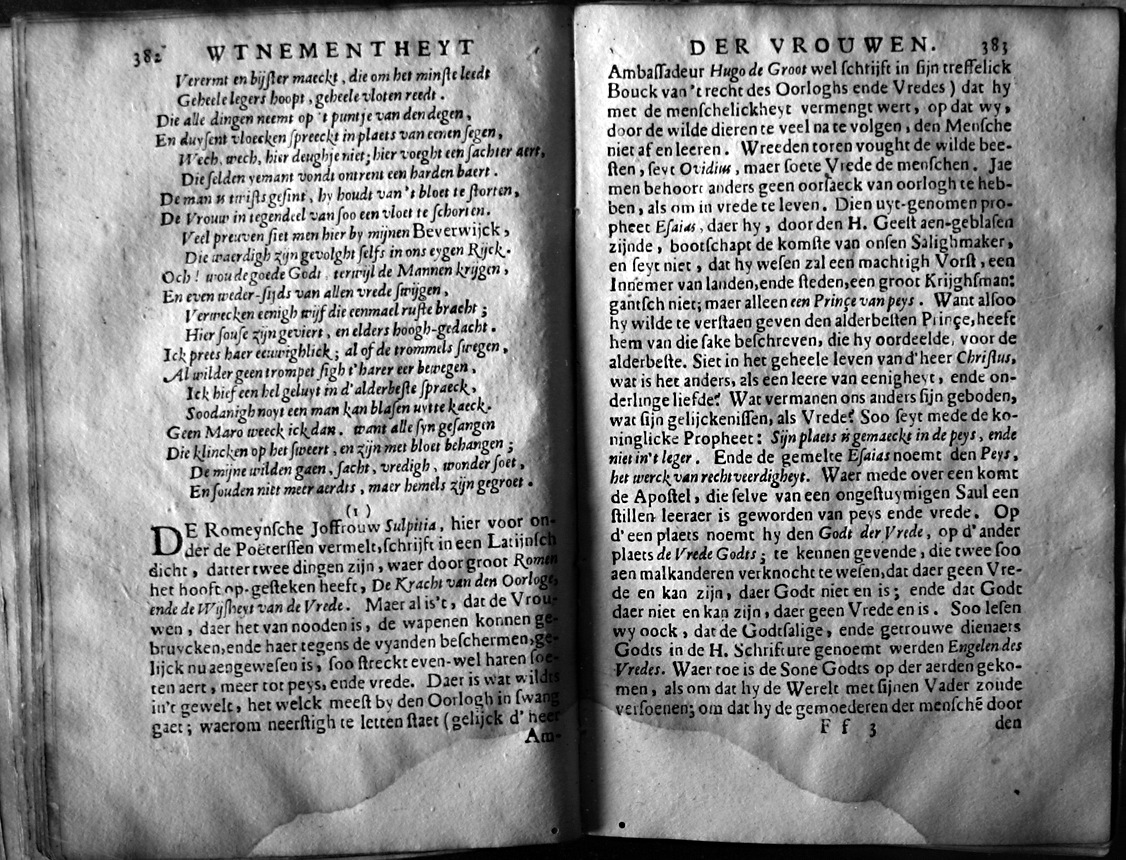 382 WTNEMENTHEYT
Verermt en bijſter maeckt, die om het minſte leedt
Geheele legers hoopt, geheele vloten reedt.
Die alle dingen neemt op 't puntje van den degen,
En duyſent vloecken ſpreeckt in plaets van eenen ſegen,
Wech, wech, hier deughje niet; hier voeght een ſachter aert,
Die ſelden yemant vondt ontrent een harden baert.
De man is twiſts geſint, hy houdt van 't bloet te ſtorten,
De Vrouw in tegendeel van ſoo een vloet te ſchorten.
Veel preuven ſiet men hier by mijnen Beverwijck,
Die waerdigh zijn gevolght ſelfs in ons eygen Rijck.
Och! wou de goede Godt, terwijl de Mannen krijgen,
En even weder-ſijds van allen vrede ſwijgen,
Verwecken eenigh wijf die eenmael ruſte bracht;
Hier ſouſe zijn geviert, en elders hoogh-gedacht.
Ick prees haer eeuwighlick; al of de trommels ſwegen,
Al wilder geen trompet ſigh t'harer eer bewegen,
Ick hief een hel geluyt in d'alderbeſte ſpraeck,
Soodanigh noyt een man kan blaſen uytte kaeck.
Geen Maro weeck ick dan. want alle ſyn geſangen
Die klincken op het ſweert, en zijn met bloet behangen;
De mijne wilden gaen, ſacht, vredigh, wonder ſoet,
En ſouden niet meer aerdts, maer hemels zijn gegroet.
(1)
DE Romeynſche Joffrouw Sulpitia, hier voor on-
der de Poëterſſen vermelt, ſchrijft in een Latijnſch
dicht, datter twee dingen zijn, waer door groot Romen
het hooft op-geſteken heeft, De Kracht van den Oorloge,
ende de Wijſheyt van de Vrede. Maer al is't, dat de Vrou-
wen, daer het van nooden is, de wapenen konnen ge-
bruycken, ende haer tegens de vyanden beſchermen, ge-
lijck nu aengeweſen is, ſoo ſtreckt even-wel haren ſoe-
ten aert, meer tot peys, ende vrede. Daer is wat wildts
in't gewelt, het welck meeſt by den Oorlogh in ſwang
gaet; waerom neerſtigh te letten ſtaet (gelijck d' heer
Am-
DER VROUWEN. 383
Ambaſſadeur Hugo de Groot wel ſchrijft in ſijn treffelick
Bouck van 't recht des Oorloghs ende Vredes) dat hy
met de menſchelickheyt vermengt wert, op dat wy,
door de wilde dieren te veel na te volgen, den Menſche
niet af en leeren. Wreeden toren vought de wilde bee-
ſten, ſeyt Ovidius, maer ſoete Vrede de menſchen. Jae
men behoort anders geen oorſaeck van oorlogh te heb-
ben, als om in vrede te leven. Dien uyt-genomen pro-
pheet Eſaias, daer hy, door den H. Geeſt aen-geblaſen
zijnde, bootſchapt de komſte van onſen Salighmaker,
en ſeyt niet, dat hy weſen zal een machtigh Vorſt, een
Innemer van landen, ende ſteden, een groot Krijghſman:
gantſch niet; maer alleen een Prinçe van peys. Want alſoo
hy wilde te verſtaen geven den alderbeſten Prinçe, heeft
hem van die ſake beſchreven, die hy oordeelde, voor de
alderbeſte. Siet in het geheele leven van d'heer Chriſtus,
wat is het anders, als een leere van eenigheyt, ende on-
derlinge liefde? Wat vermanen ons anders ſijn geboden,
wat ſijn gelijckeniſſen, als Vrede? Soo ſeyt mede de ko-
ninglicke Propheet: Sijn plaets is gemaeckt in de peys, ende
niet in't leger. Ende de gemelte Eſaias noemt den Peys,
het werck van rechtveerdigheyt. Waer mede over een komt
de Apoſtel, die ſelve van een ongeſtuymigen Saul een
ſtillen leeraer is geworden van peys ende vrede. Op
d'een plaets noemt hy den Godt der Vrede, op d'ander
plaets de Vrede Godts; te kennen gevende, die twee ſoo
aen malkanderen verknocht te weſen, dat daer geen Vre-
de en kan zijn, daer Godt niet en is; ende dat Godt
daer niet en kan zijn, daer geen Vrede en is. Soo leſen
wy oock, dat de Godtſalige, ende getrouwe dienaets
Godts in de H. Schrifture genoemt werden Engelen des
Vredes. Waer toe is de Sone Godts op der aerden geko-
men, als om dat hy de Werelt met ſijnen Vader zoude
verſoenen; om dat hy de gemoederen der menſchē door
F f 3 den